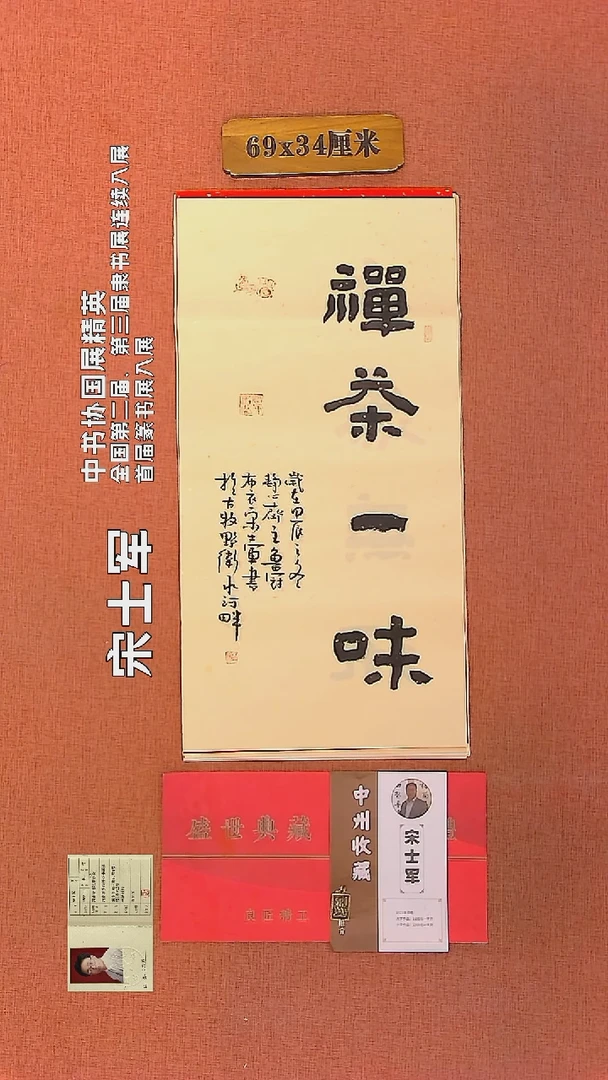 69x34厘米
禪茶一味
歲在甲辰之冬
静心齋主魯冠
布衣宋士軍書
於古牧野衛水河畔
宋士军
中书协国展精英
全国第二届、第三届隶书展连续入展
首届篆书展入展
盛世典藏
良匠精工
中州收藏
宋士军